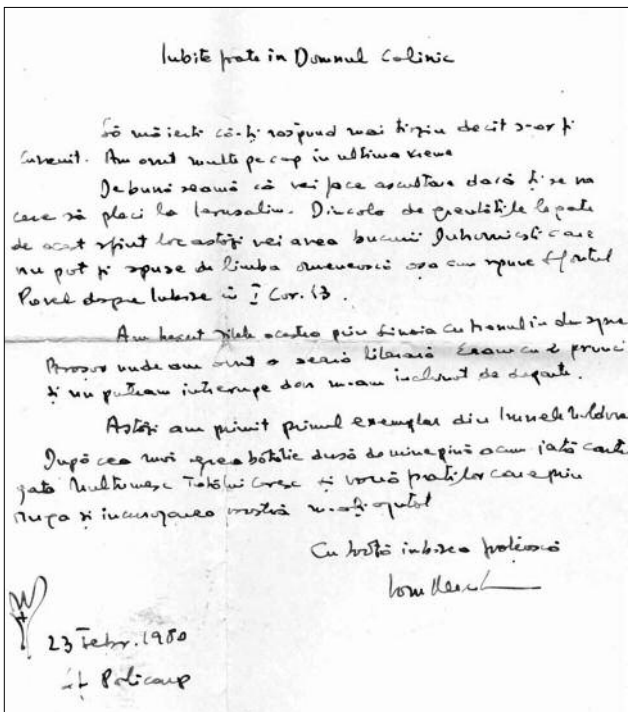 Iubite frate in Domnul Calinic
Să mă ierti că-ți răspund mai tîrziu decît s-ar fi
cuvenit. Am avut multe pe cap in ultima vreme
De bună seamă că vei face ascultare dacă ți se va
cere să pleci la Ierusalim. Dincolo de greutățile legate
de acest sfînt loc astăzi vei avea bucurii Duhovnicești care
nu pot fi spuse de limba omenească așa cum spune Sfîntul
Pavel despre Iubire in I Cor. 13.
Am trecut zilele acestea prin Sinaia cu trenul in dr. spre
Brașov unde am avut o seară literară Eram cu 2 prunci
și nu puteam intrerupe dar m-am inchinat de departe.
Astăzi am primit primul exemplar din Imnele Moldove
După cea mai grea bătălie dusă de mine pînă acum iată cartea
gata Multumesc Tatălui Ceresc și vouă fraților care prin
ruga și incurajarea voastră m-ați ajutat
Cu toată iubirea frățească
Ioan
23 Febr. 1980
Sf Policarp